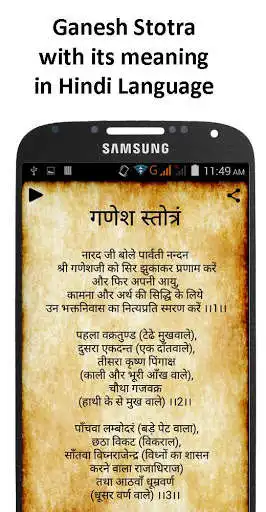 Ganesh Stotra
with its meaning
in Hindi Language
SAMSUNG
G
11:49 AM
गणेश स्तोत्रं
नारद जी बोले पार्वती नन्दन
श्री गणेशजी को सिर झुकाकर प्रणाम करें
और फिर अपनी आयु,
कामना और अर्थ की सिद्धि के लिये
उन भक्तनिवास का नित्यप्रति स्मरण करें ।।1।।
पहला वक्रतुण्ड (टेढे मुखवाले),
दुसरा एकदन्त (एक दाँतवाले),
तीसरा कृष्ण पिंगाक्ष
(काली और भूरी आँख वाले),
चौथा गजवक्र
(हाथी के से मुख वाले) ।।2।।
पाँचवा लम्बोदरं (बड़े पेट वाला),
छठा विकट (विकराल),
साँतवा विघ्नराजेन्द्र (विध्नों का शासन
करने वाला राजाधिराज)
तथा आठवाँ धूम्रवर्ण
(धूसर वर्ण वाले) ।।3।।